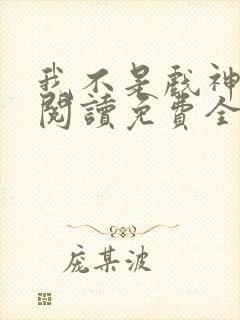 我不是戲神
閱讀免費全
庞某波